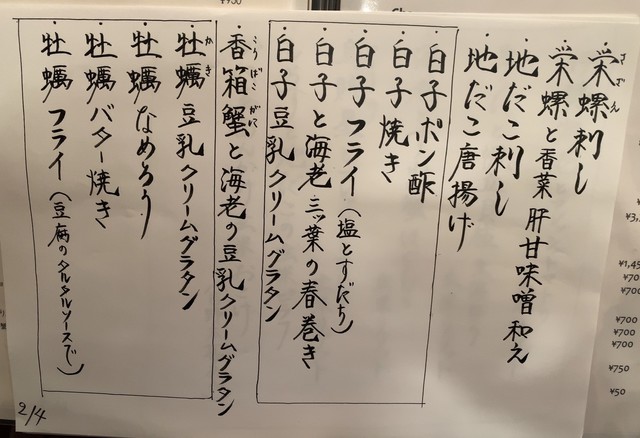 ・栄螺刺し
さざえ
・栄螺と香菜 肝甘味噌和え
・地だこ刺し
・地だこ唐揚げ
・白子ポン酢
・白子焼き
・白子フライ（塩とすだち）
・白子と海老 三ッ葉の春巻き
・白子豆乳クリームグラタン
・香箱蟹と海老の豆乳クリームグラタン
こうばこがに
・牡蠣豆乳クリームグラタン
かき
・牡蠣なめろう
・牡蠣バター焼き
・牡蠣フライ（豆腐のタルタルソースで）
2/4
¥1,45
¥700
¥700
¥700
¥700
¥700
¥750
¥50